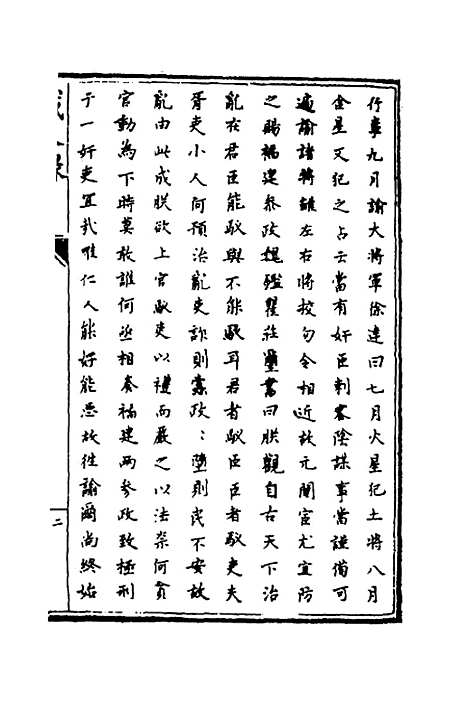 行事九月諭大將軍徐達曰七月火星犯土將八月
金星又犯之占云當有奸臣刺客陰謀事當謹備可
遍諭諸將雖左右將校勿令相近故元閹宦尤宜防
之賜福建參政魏鑑瞿莊璽書曰朕觀自古天下治
亂在君臣能馭與不能馭耳君者馭臣臣者馭吏夫
胥吏小人何預治亂吏詐則蠹政政墮則民不安故
亂由此成朕欲上官馭吏以禮而嚴之以法柰何貪
官動為下時莫敢誰何丞相奏福建兩參政致極刑
于一奸吏宜哉唯仁人能好能惡故徃諭爾尚終始
二